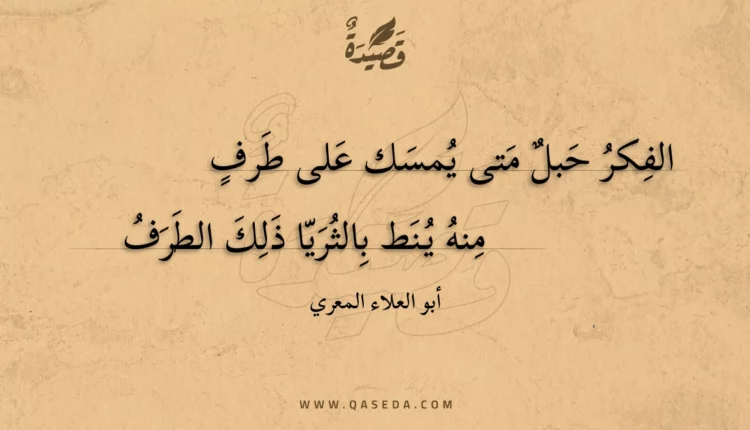 قَصِيْدَةٌ
الفِكرُ حَبلٌ مَتى يُمسَك عَلى طَرفٍ
مِنهُ يُنَط بِالثُرَيّا ذَلِكَ الطَرَفُ
أبو العلاء المعري
WWW.QASEDA.COM